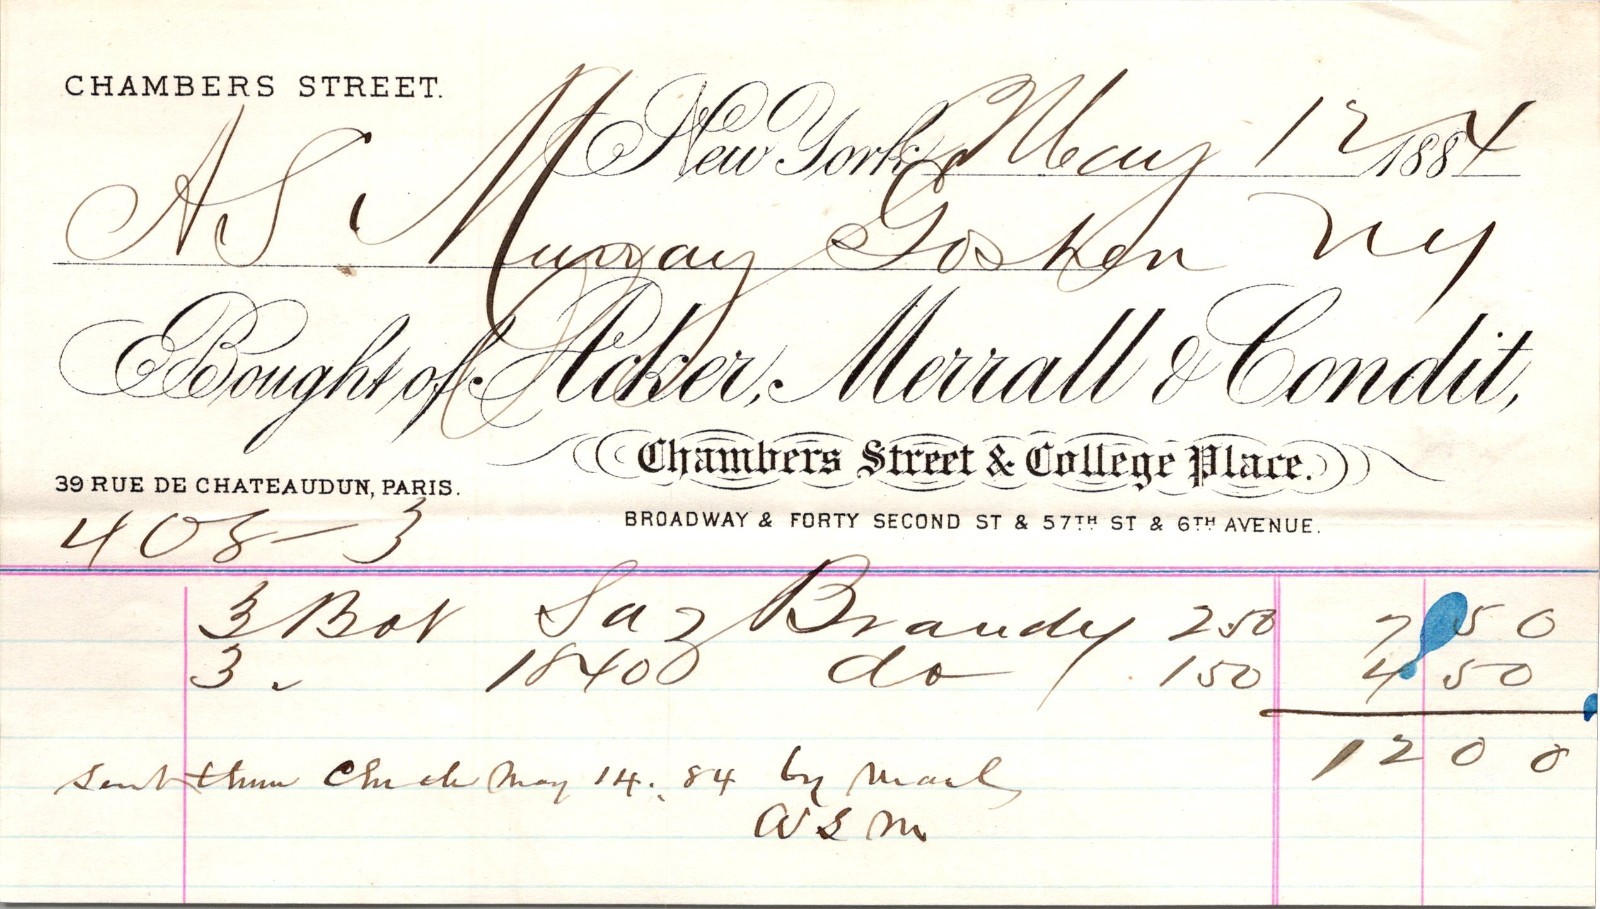 CHAMBERS STREET.
New York, May 12 1884
A S. Murray Goshen NY
Bought of Acker, Merrall & Condit,
Chambers Street & College Place.
39 RUE DE CHATEAUDUN, PARIS.
BROADWAY & FORTY SECOND ST & 57TH ST & 6TH AVENUE.
408-3
3 Bot Saz Brandy 250 7 50
3 " 18400 do 150 4 50
12 00
sent them Check May 14. 84 by Mail
A S M